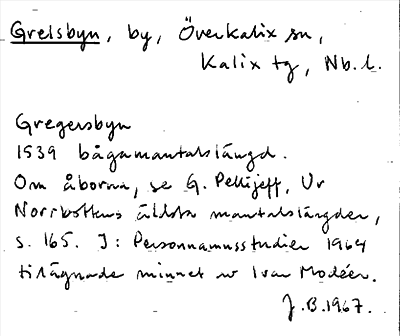 Grelsbyn, by, Överkalix sn,
Kalix tg, Nb. l.
Gregersbyn
1539 bågamantalslängd.
Om åborna, se G. Pellijeff, Ur
Norrbottens äldsta mantalslängder,
s. 165. I: Personnamnsstudier 1964
tillägnade minnet av Ivar Modéer.
J.B.1967.